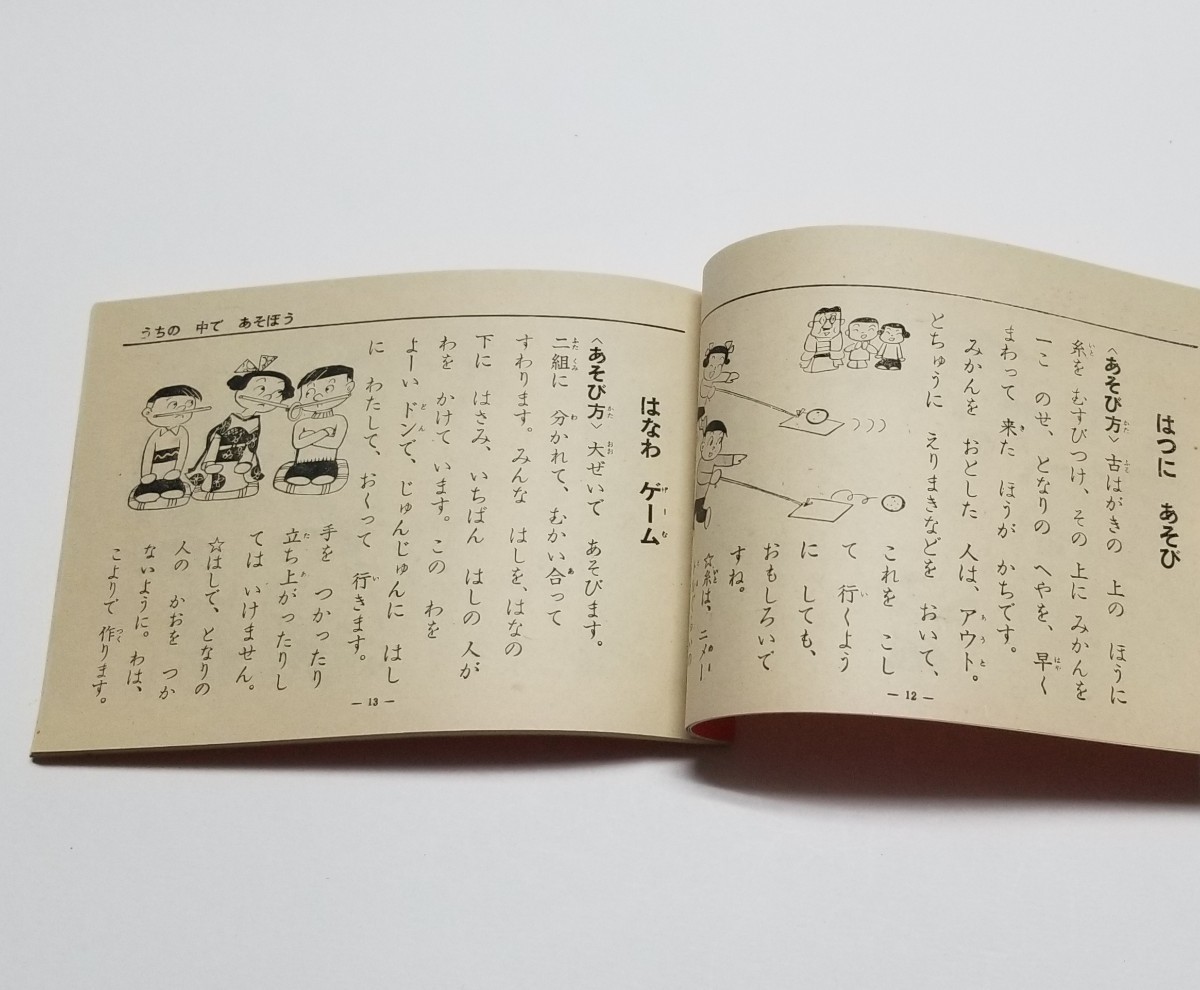 はつに あそび
〈あそび方〉古はがきの 上の ほうに
糸を むすびつけ、その 上に みかんを
一こ のせ、となりの へやを、早く
まわって 来た ほうが かちです。
みかんを おとした 人は、アウト。
とちゅうに えりまきなどを おいて、
これを こし
て 行くよう
に しても、
おもしろいで
すね。
☆糸は、二メー
— 12 —
うちの 中で あそぼう
はなわ ゲーム
〈あそび方〉大ぜいで あそびます。
二組に 分かれて、むかい合って
すわります。みんな はしを、はなの
下に はさみ、いちばん はしの 人が
わを かけて います。この わを
よーい ドンで、じゅんじゅんに はし
に わたして、おくって 行きます。
手を つかったり
立ち上がったりし
ては いけません。
☆はしで、となりの
人の かおを つか
ないように。わは、
こよりで 作ります。
— 13 —